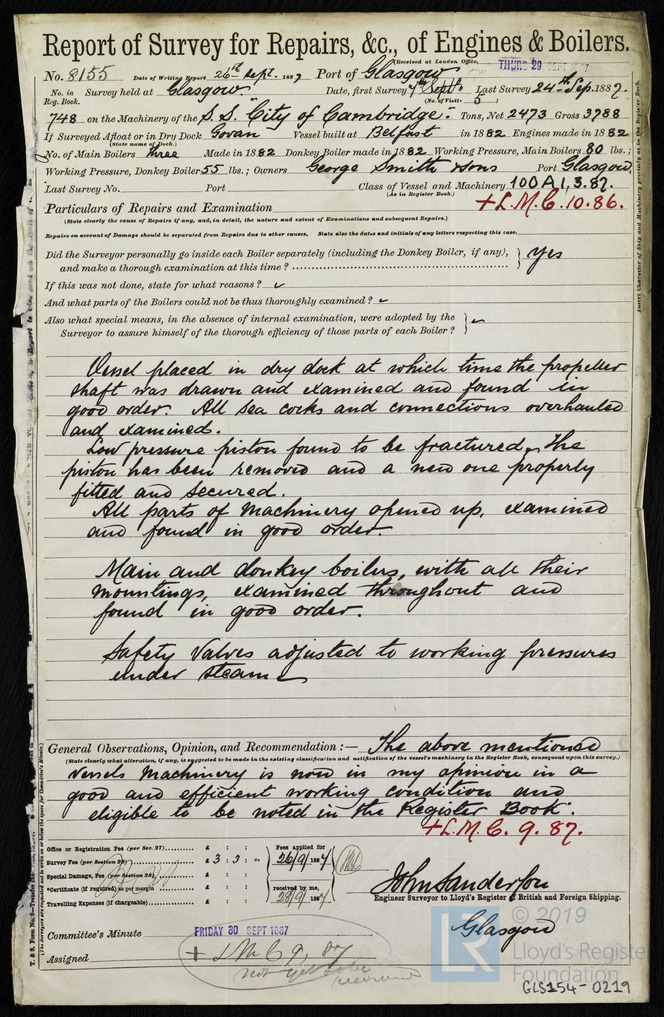 Report of Survey for Repairs, &c., of Engines & Boilers.
(Received at London Office, THURS 29 SEPT 1887
No. 8155 Date of Writing Report 26th Sept. 1887 Port of Glasgow
No. in Reg. Book. Survey held at Glasgow. Date, first Survey 7th Sept. Last Survey 24th Sep. 1887.
(No. of Visits 5)
748 on the Machinery of the S.S. "City of Cambridge". Tons, Net 2473 Gross 3788
If Surveyed Afloat or in Dry Dock Govan Vessel built at Belfast in 1882 Engines made in 1882
(State name of Dock.)
No. of Main Boilers three Made in 1882 Donkey Boiler made in 1882 Working Pressure, Main Boilers 80 lbs.;
Working Pressure, Donkey Boiler 55 lbs.; Owners George Smith & Sons Port Glasgow
Last Survey No. Port Class of Vessel and Machinery 100A1, 3.87.
(As in Register Book.)
+L.M.C. 10.86.
Particulars of Repairs and Examination
(State clearly the cause of Repairs if any, and, in detail, the nature and extent of Examinations and subsequent Repairs.)
Repairs on account of Damage should be separated from Repairs due to other causes. State also the dates and initials of any letters respecting this case.
Did the Surveyor personally go inside each Boiler separately (including the Donkey Boiler, if any), and make a thorough examination at this time? Yes
If this was not done, state for what reasons? ✓
And what parts of the Boilers could not be thus thoroughly examined? ✓
Also what special means, in the absence of internal examination, were adopted by the
Surveyor to assure himself of the thorough efficiency of those parts of each Boiler? ✓
Vessel placed in dry dock at which time the propeller
shaft was drawn and examined and found in
good order. All sea cocks and connections overhauled
and examined.
Low pressure piston found to be fractured, the
piston has been removed and a new one properly
fitted and secured.
All parts of machinery opened up, examined
and found in good order.
Main and donkey boilers, with all their
mountings, examined throughout and
found in good order.
Safety valves adjusted to working pressures
under steam
General Observations, Opinion, and Recommendation:— The above mentioned
(State clearly what alteration, if any, is suggested to be made in the existing classification and notification of the vessel's machinery in the Register Book, consequent upon this survey.)
vessels machinery is now in my opinion in a
good and efficient working condition and
eligible to be noted in the Register Book.
+L.M.C. 9. 87.
Office or Registration Fee (per Sec. 27)
Survey Fee (per Section 28) £ 3 : 3 : -
Special Damage, Fee (per Section 28)
Certificate (if required) as per margin
Travelling Expenses (if chargeable)
Fees applied for
26/9/1887
received by me,
28/9/1887
John Sanderson
Engineer Surveyor to Lloyd's Register of British and Foreign Shipping.
Glasgow
Committee's Minute FRIDAY 30 SEPT 1887
Assigned + LMC 9, 87
not yet to be
Insert Character of Ship and Machinery precisely as in the Register Book.
© 2019
LR
Lloyd's Register
Foundation
GLS154-0219